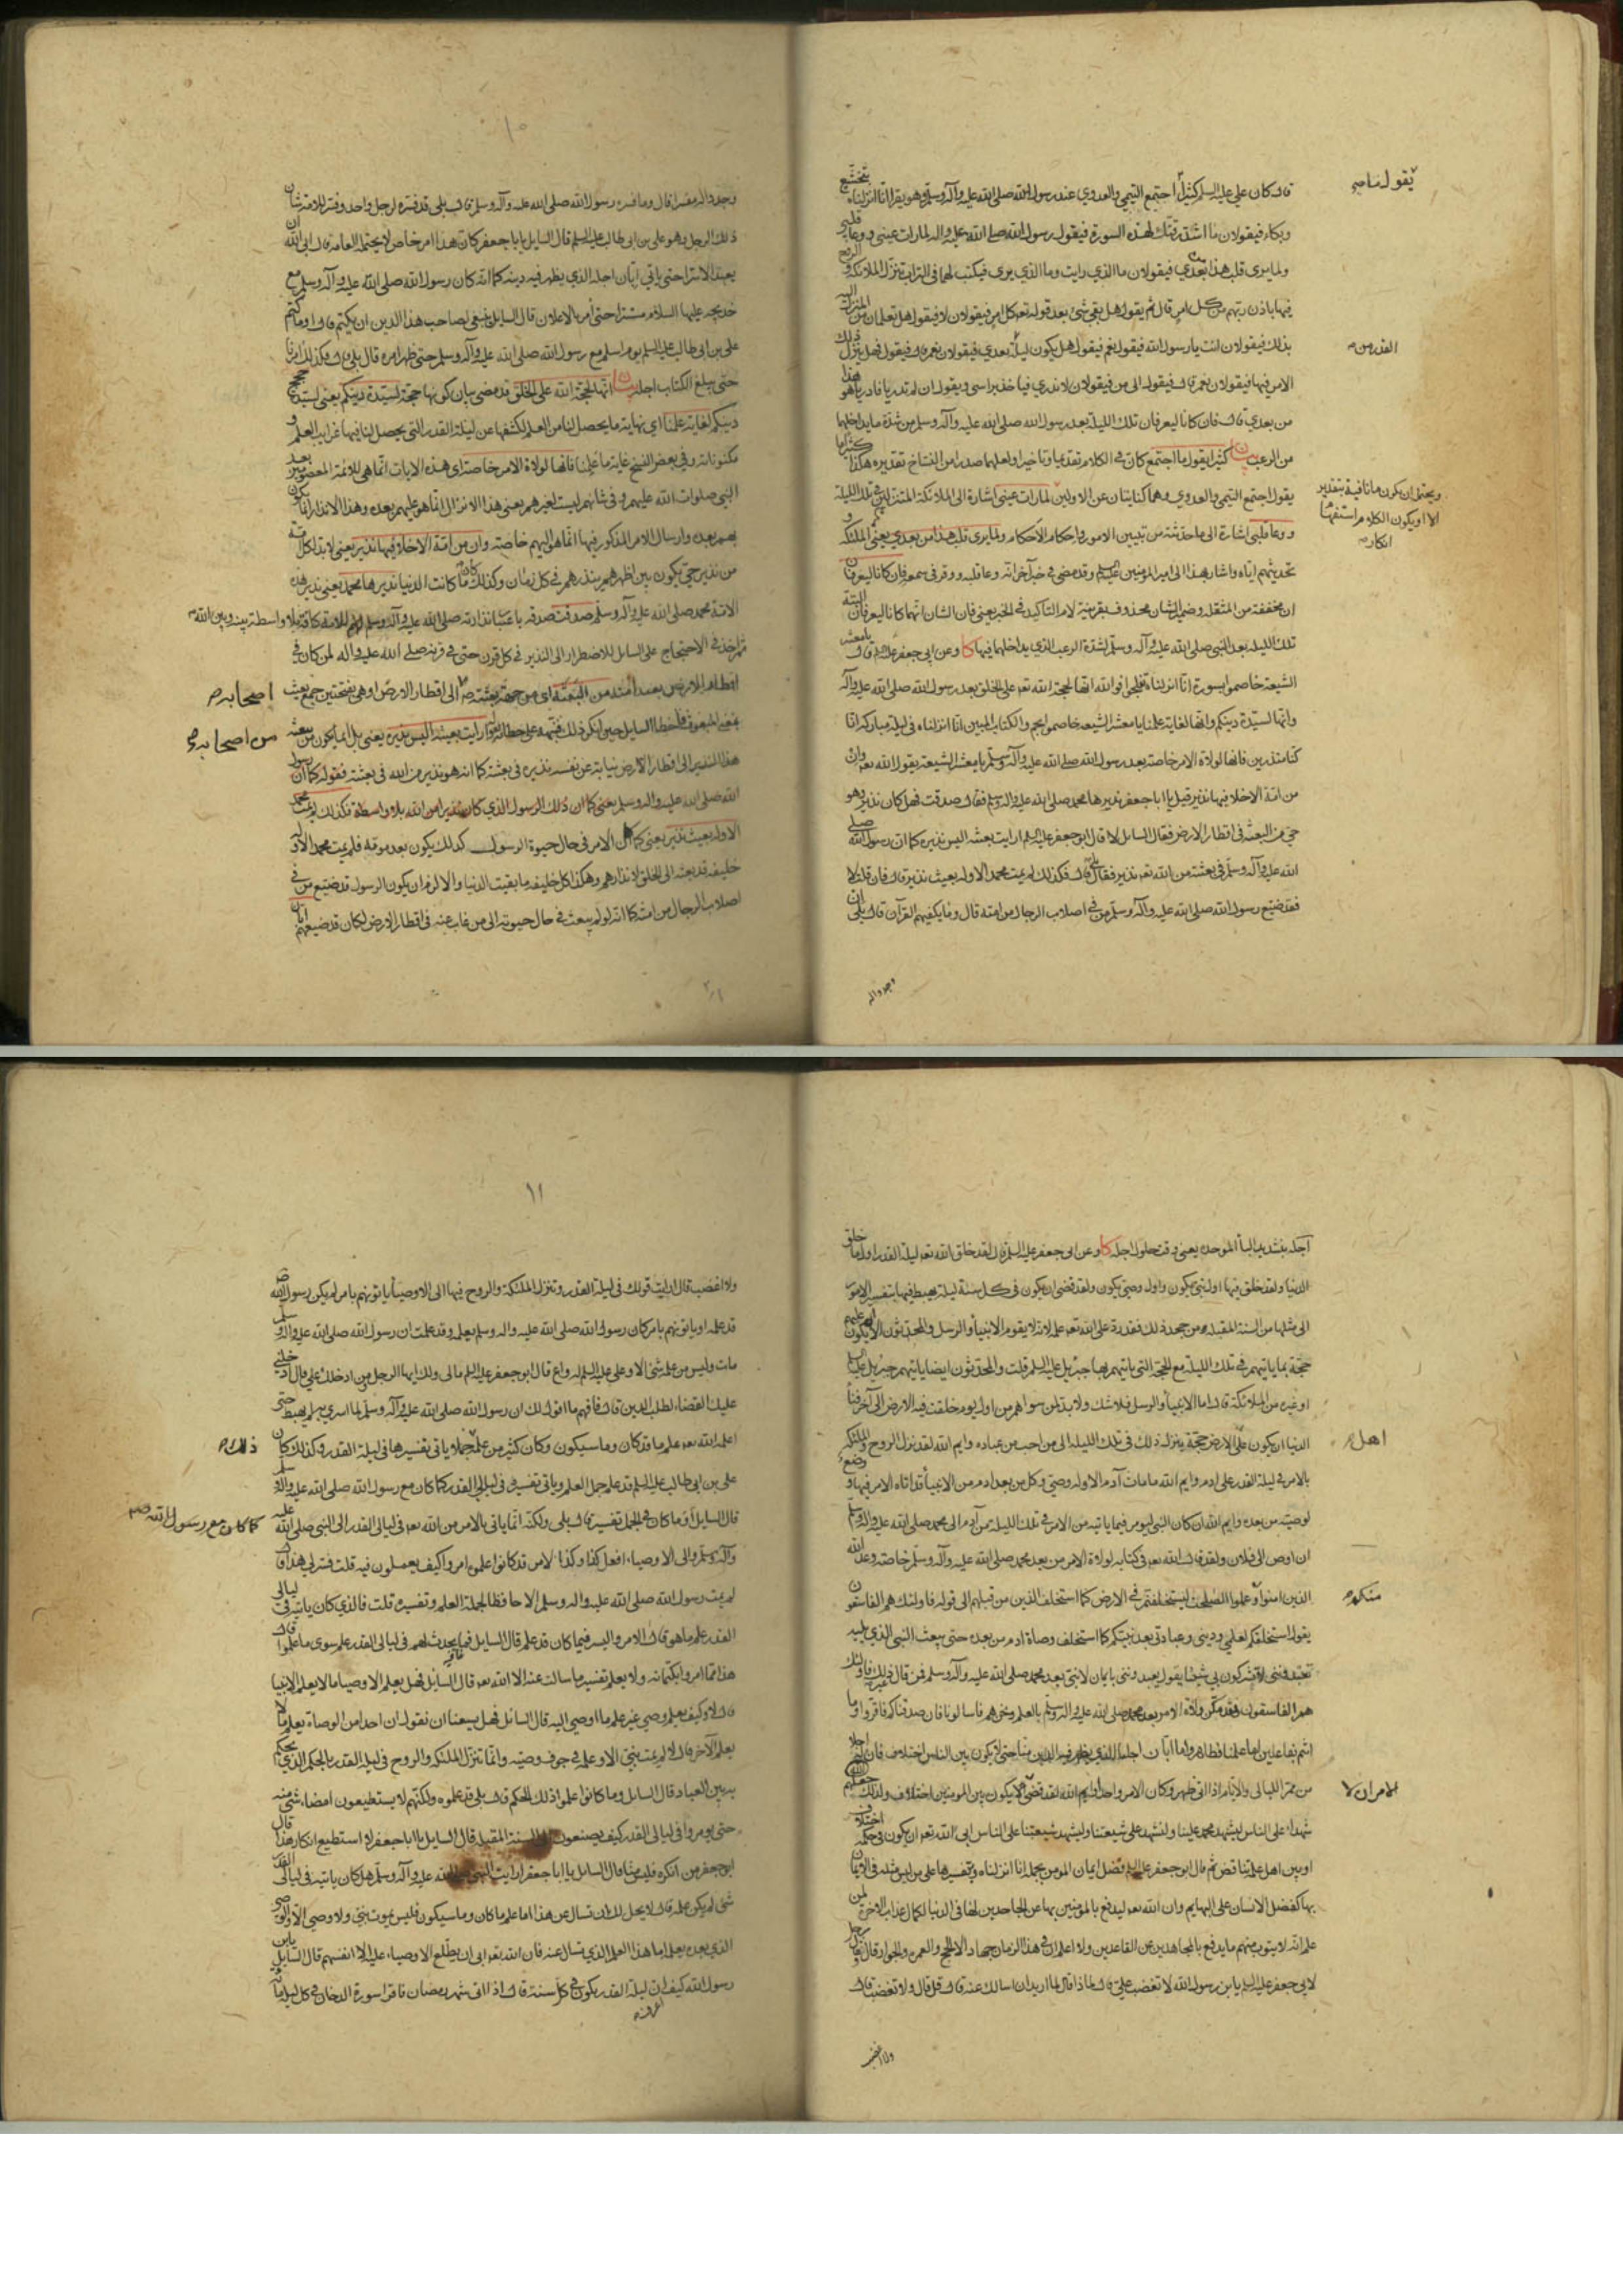 قال كان علي عليه السلم كثيرا اجتمع التيمي والعدوي عند رسول الله صلى الله عليه وآله وسلم وهو يقرا انا انزلناه بتخشع
يقول ما
وبكاء فيقولان ما اشد رقتك لهذه السورة فيقول رسول الله صلى الله عليه واله لما رات عيني ووعا قلبي
ولما يرى قلب هذا بعدي فيقولان ما الذي رايت وما الذي يرى فيكتب لهما في التراب تنزل الملائكة والروح
فيها باذن ربهم من كل امر قال ثم يقول هل بقي شئ بعد قوله تعه كل امر فيقولان لا فيقول هل تعلمان من المنزل اليه
بذلك فيقولان انت يا رسول الله فيقول نعم فيقول هل يكون ليلة بعدي فيقولان نعم قال فيقول فهل ينزل ذلك
القدر من
الامر فيها فيقولان نعم قال فيقول الى من فيقولان لا ندري فياخذ براسي ويقول ان لم تدريا فادريا هو هذا
من بعدي قال فان كانا ليعرفان تلك الليلة بعد رسول الله صلى الله عليه وآله وسلم من شدة ما يداخلهما
من الرعب بيان كثيرا يقول ما اجتمع كان في الكلام تقديما وتاخيرا ولعلهما صدرا من النساخ تقديره هكذا كثيرا ما
يقول اجتمع التيمي والعدوي وهما كنايتان عن الاولين لما رات عيني اشارة الى الملائكة المتنزلين في تلك الليلة
ويحتمل ان يكون ما نافية بتقدير
الا او يكون الكلام استفهاما
انكار
ووعا قلبي اشارة الى ما حدثته من تبيين الامور واحكام الاحكام ولما يرى قلب هذا من بعدي يعني الملئكة و
تحديثهم اياه واشار بهذا الى امير المؤمنين عليه السلم وقد مضى في خبر آخر انه وعا قلبه ووقر في سمعه فان كانا ليعرفان
ان مخففة من المثقلة وضمير الشان محذوف بقرينة لام التاكيد في الخبر يعني فان الشان انهما كانا ليعرفان البتة
تلك الليلة بعد النبي صلى الله عليه وآله وسلم لشدة الرعب الذي يداخلهما فيها كا وعن ابي جعفر عليه السلم قال يا معشر
الشيعة خاصموا بسورة انا انزلناه تفلجوا فوالله انها لحجة الله تعه على الخلق بعد رسول الله صلى الله عليه وآله
وانها لسيدة دينكم وانها لغاية علمنا يا معشر الشيعة خاصموا بحم والكتاب المبين انا انزلناه في ليلة مباركة انا
كنا منذرين فانها لولاة الامر خاصة بعد رسول الله صلى الله عليه وآله وسلم يا معشر الشيعة يقول الله تعه وان
من امة الا خلا فيها نذير قيل يا ابا جعفر نذيرها محمد صلى الله عليه واله وسلم فقال صدقت فهل كان نذير وهو
حي من البعثة في اقطار الارض فقال السايل لا قال ابو جعفر عليه السلم ارايت بعيثه اليس نذيره كما ان رسول الله صلى
الله عليه وآله وسلم في بعثته من الله تعه نذير فقال بلى قال فكذلك لم يمت محمد الا وله بعيث نذير قال فان قلت لا
فقد ضيع رسول الله صلى الله عليه وآله وسلم من في اصلاب الرجال من امته قال وما يكفيهم القرآن قال بلى ان
وجدوا له
١٠
وجدوا له مفسرا قال وما فسره رسول الله صلى الله عليه وآله وسلم قال بلى قد فسره لرجل واحد وفسر للامة شان
ذلك الرجل وهو علي بن ابي طالب عليه السلم قال السايل يا با جعفر كان هذا امر خاص لا يحتمله العامة قال ابى الله ان
يعبد الا سرا حتى ياتي ابان اجله الذي يظهر فيه دينه كما انه كان رسول الله صلى الله عليه وآله وسلم مع
خديجة عليها السلام مستترا حتى أمر بالاعلان قال السايل ينبغي لصاحب هذا الدين ان يكتم قال اوما كتم
علي بن ابي طالب عليه السلم يوم اسلم مع رسول الله صلى الله عليه وآله وسلم حتى ظهر امره قال بلى قال فكذلك امرنا
حتى يبلغ الكتاب اجله بيان انها لحجة الله على الخلق قد مضى بيان كونها حجة لسيدة دينكم يعني لسيدة حجج
دينكم لغاية علمنا اي نهاية ما يحصل لنا من العلم لكشفها عن ليلة القدر التي يحصل لنا فيها غرايب العلم و
مكنوناته وفي بعض النسخ غاية ما علمنا فانها لولاة الامر خاصة اي هذه الايات انما هي للائمة المعصومين بعد
النبي صلوات الله عليهم وفي شانهم ليست لغيرهم يعني هذا الانزال انما هو عليهم بعده وهذا الانذار انما يكون
بهم بعده وارسال الامر المذكور فيها انما هو اليهم خاصة وان من امة الا خلا فيها نذير يعني لا بد لكل امة
من نذير حي يكون بين اظهرهم ينذرهم في كل زمان وكذلك كان ما كانت الدنيا نذيرها محمد يعني نذير هذه
الامة محمد صلى الله عليه وآله وسلم صدقت صدقه باعتبار انذارته صلى الله عليه وآله وسلم للامة كافة بلا واسطة بينه وبين الله
ثم اخذ في الاحتجاج على السايل للاضطرار الى النذير في كل قرن حتى في قرنه صلى الله عليه وآله لمن كان في
اقطار الارض بعيدا منه من البعثة اي من جهة بعثته الى اقطار الارض او هي بفتحتين جمع بعيث
اصحابه
بمعنى المبعوث فلما اخطا السايل حين انكر ذلك نبهه على خطائه بقوله ارايت بعيثه اليس نذيره يعني بل انما يكون من بعثه
من اصحابه
هذا النذير الى اقطار الارض نيابة عن نفسه نذيره في بعثته كما انه هو نذير من الله في بعثته فقوله كما ان رسول
الله صلى الله عليه واله وسلم يعني كما ان ذلك الرسول الذي كان نذيرا من الله بلا واسطة فكذلك لم يمت محمد
الا وله بعيث نذير يعني كما كان الامر في حال حيوة الرسول كذلك يكون بعد موته فلم يمت محمد الا و
خليفته قد بعثه الى الخلق لانذارهم وهكذا كل خليفة ما بقيت الدنيا والا لزم ان يكون الرسول قد ضيع من في
اصلاب الرجال من امته كما انه لو لم يبعث في حال حيوته الى من غاب عنه في اقطار الارض لكان قد ضيعهم ابان
اجله بتشديد البا الموحدة يعني وقت حلول اجله كا وعن ابي جعفر عليه السلم قال لقد خلق الله تعه ليلة القدر اول ما خلق
الدنيا ولقد خلق فيها اول نبي يكون واول وصي يكون ولقد قضى ان يكون في كل سنة ليلة يهبط فيها بتفسير الامور
الى مثلها من السنة المقبلة من جحد ذلك فقد رد على الله تعه علمه لانه لا يقوم الانبيأ والرسل والمحدثون الا ان يكون عليهم
حجة بما ياتيهم في تلك الليلة مع الحجة التي ياتيهم بها جبريل عليه السلم قلت والمحدثون ايضا ياتيهم جبريل عليه السلم
او غيره من الملائكة قال اما الانبيأ والرسل فلا شك ولا بد لمن سواهم من اول يوم خلقت فيه الارض الى آخر فنأ
الدنيا ان يكون على الارض حجة ينزل ذلك في تلك الليلة الى من احب من عباده وايم الله لقد نزل الروح والملئكة
اهل
بالامر في ليلة القدر على ادم وايم الله ما مات آدم الا وله وصي وكل من بعد ادم من الانبيأ قد اتاه الامر فيها ووضع
لوصيه من بعده وايم الله ان كان النبي ليومر فيما ياتيه من الامر في تلك الليلة من آدم الى محمد صلى الله عليه واله وسلم
ان اوص الى فلان ولقد قال الله تعه في كتابه لولاة الامر من بعد محمد صلى الله عليه وآله وسلم خاصة وعد الله
الذين امنوا وعملوا الصلحت ليستخلفنهم في الارض كما استخلف الذين من قبلهم الى قوله فاولئك هم الفاسقون
منكم
يقول استخلفكم لعلمي وديني وعبادتي بعد نبيكم كما استخلف وصاة ادم من بعده حتى يبعث النبي الذي يليه
تعبدونني لا تشركون بي شيئا يقول يعبدونني بايمان لا نبي بعد محمد صلى الله عليه وآله وسلم فمن قال غير ذلك فاولئك
هم الفاسقون فقد مكن ولاة الامر بعد محمد صلى الله عليه واله وسلم بالعلم ونحن هم فاسالونا فان صدقناكم فاقروا وما
انتم بفاعلين اما علمنا فظاهر واما ابان اجلنا الذي يظهر فيه الدين منا حتى لا يكون بين الناس اختلاف فان له اجلا
من ممر الليالي والايام اذا اتى ظهر وكان الامر واحدا وايم الله لقد قضي ان لا يكون بين المومنين اختلاف ولذلك جعلهم
الامر ان لا
شهداء على الناس ليشهد محمد علينا ولنشهد على شيعتنا وليشهد شيعتنا على الناس ابى الله تعه ان يكون في حكمه اختلاف
او بين اهل علمه تناقض ثم قال ابو جعفر عليه السلم فضل ايمان المومن بجملة انا انزلناه وبتفسيرها على من ليس مثله في الايمان
بها كفضل الانسان على البهايم وان الله تعه ليدفع بالمؤمنين بها عن الجاحدين لها في الدنيا لكمال عذاب الاخرة لمن
علم انه لا يتوب منهم ما يدفع بالمجاهدين عن القاعدين ولا اعلم ان في هذا الزمان جهادا الا الحج والعمرة والجوار وقال رجل
لابي جعفر عليه السلم يا بن رسول الله لا تغضب علي قال لماذا قال لما اريد ان اسالك عنه قال قل قال ولا تغضب قال
ولا اغضب
١١
ولا اغضب قال ارايت قولك في ليلة القدر وتنزل الملئكة والروح فيها الى الاوصيأ ياتونهم بامر لم يكن رسول الله ص
قد علمه او ياتونهم بامر كان رسول الله صلى الله عليه واله وسلم يعلمه وقد علمت ان رسول الله صلى الله عليه وآله وسلم
مات وليس من علمه شئ الا وعلي عليه السلم له واع قال ابو جعفر عليه السلم ما لي ولك ايها الرجل ومن ادخلك علي قال ادخلني
عليك القضاء لطلب الدين قال فافهم ما اقول لك ان رسول الله صلى الله عليه وآله وسلم لما اسري به لم يهبط حتى
اعلمه الله تعه علم ما قد كان وما سيكون وكان كثير من علمه جملا ياتي تفسيرها في ليلة القدر وكذلك كان
ذلك
علي بن ابي طالب عليه السلم قد علم جمل العلم وياتي تفسيره في ليالي القدر كما كان مع رسول الله صلى الله عليه واله وسلم
كما كان مع رسول الله
قال السايل أو ما كان في الجمل تفسير قال بلى ولكنه انما ياتي بالامر من الله تعه في ليالي القدر الى النبي صلى الله عليه
وآله وسلم والى الاوصياء افعل كذا وكذا لامر قد كانوا علموه امروا كيف يعملون فيه قلت فسر لي هذا قال
لم يمت رسول الله صلى الله عليه واله وسلم الا حافظا لجملة العلم وتفسيره قلت فالذي كان ياتيه في ليالي
القدر علم ما هو قال الامر واليسر فيما كان قد علم قال السايل فما يحدث لهم في ليالي القدر علم سوى ما علموا قال
هذا مما امروا بكتمانه ولا يعلم تفسير ما سالت عنه الا الله تعه قال السايل فهل يعلم الاوصيا ما لا يعلم الانبيا
قال لا وكيف يعلم وصي غير علم ما اوصي اليه قال السائل فهل يسعنا ان نقول ان احدا من الوصاة يعلم ما لا
يعلم الآخر قال لا لم يمت نبي الا وعلمه في جوف وصيه وانما تنزل الملئكة والروح في ليلة القدر بالحكم الذي يحكم
به بين العباد قال السايل وما كانوا علموا ذلك الحكم قال بلى قد علموه ولكنهم لا يستطيعون امضاء شئ منه
حتى يومروا في ليالي القدر كيف يصنعون الى السنة المقبلة قال السايل يا ابا جعفر لا استطيع انكار هذا قال
ابو جعفر من انكره فليس منا قال السايل يا ابا جعفر ارايت النبي صلى الله عليه وآله وسلم هل كان ياتيه في ليالي القدر
شئ لم يكن علمه قال لا يحل لك ان تسال عن هذا اما علم ما كان وما سيكون فليس يموت نبي ولا وصي الا والوصي
الذي بعده يعلم اما هذا العلم الذي تسال عنه فان الله تعه ابى ان يطلع الاوصياء عليه الا انفسهم قال السايل يابن
رسول الله كيف اعرف ان ليلة القدر يكون في كل سنة قال اذا اتى شهر رمضان فاقرا سورة الدخان في كل ليلة مائة